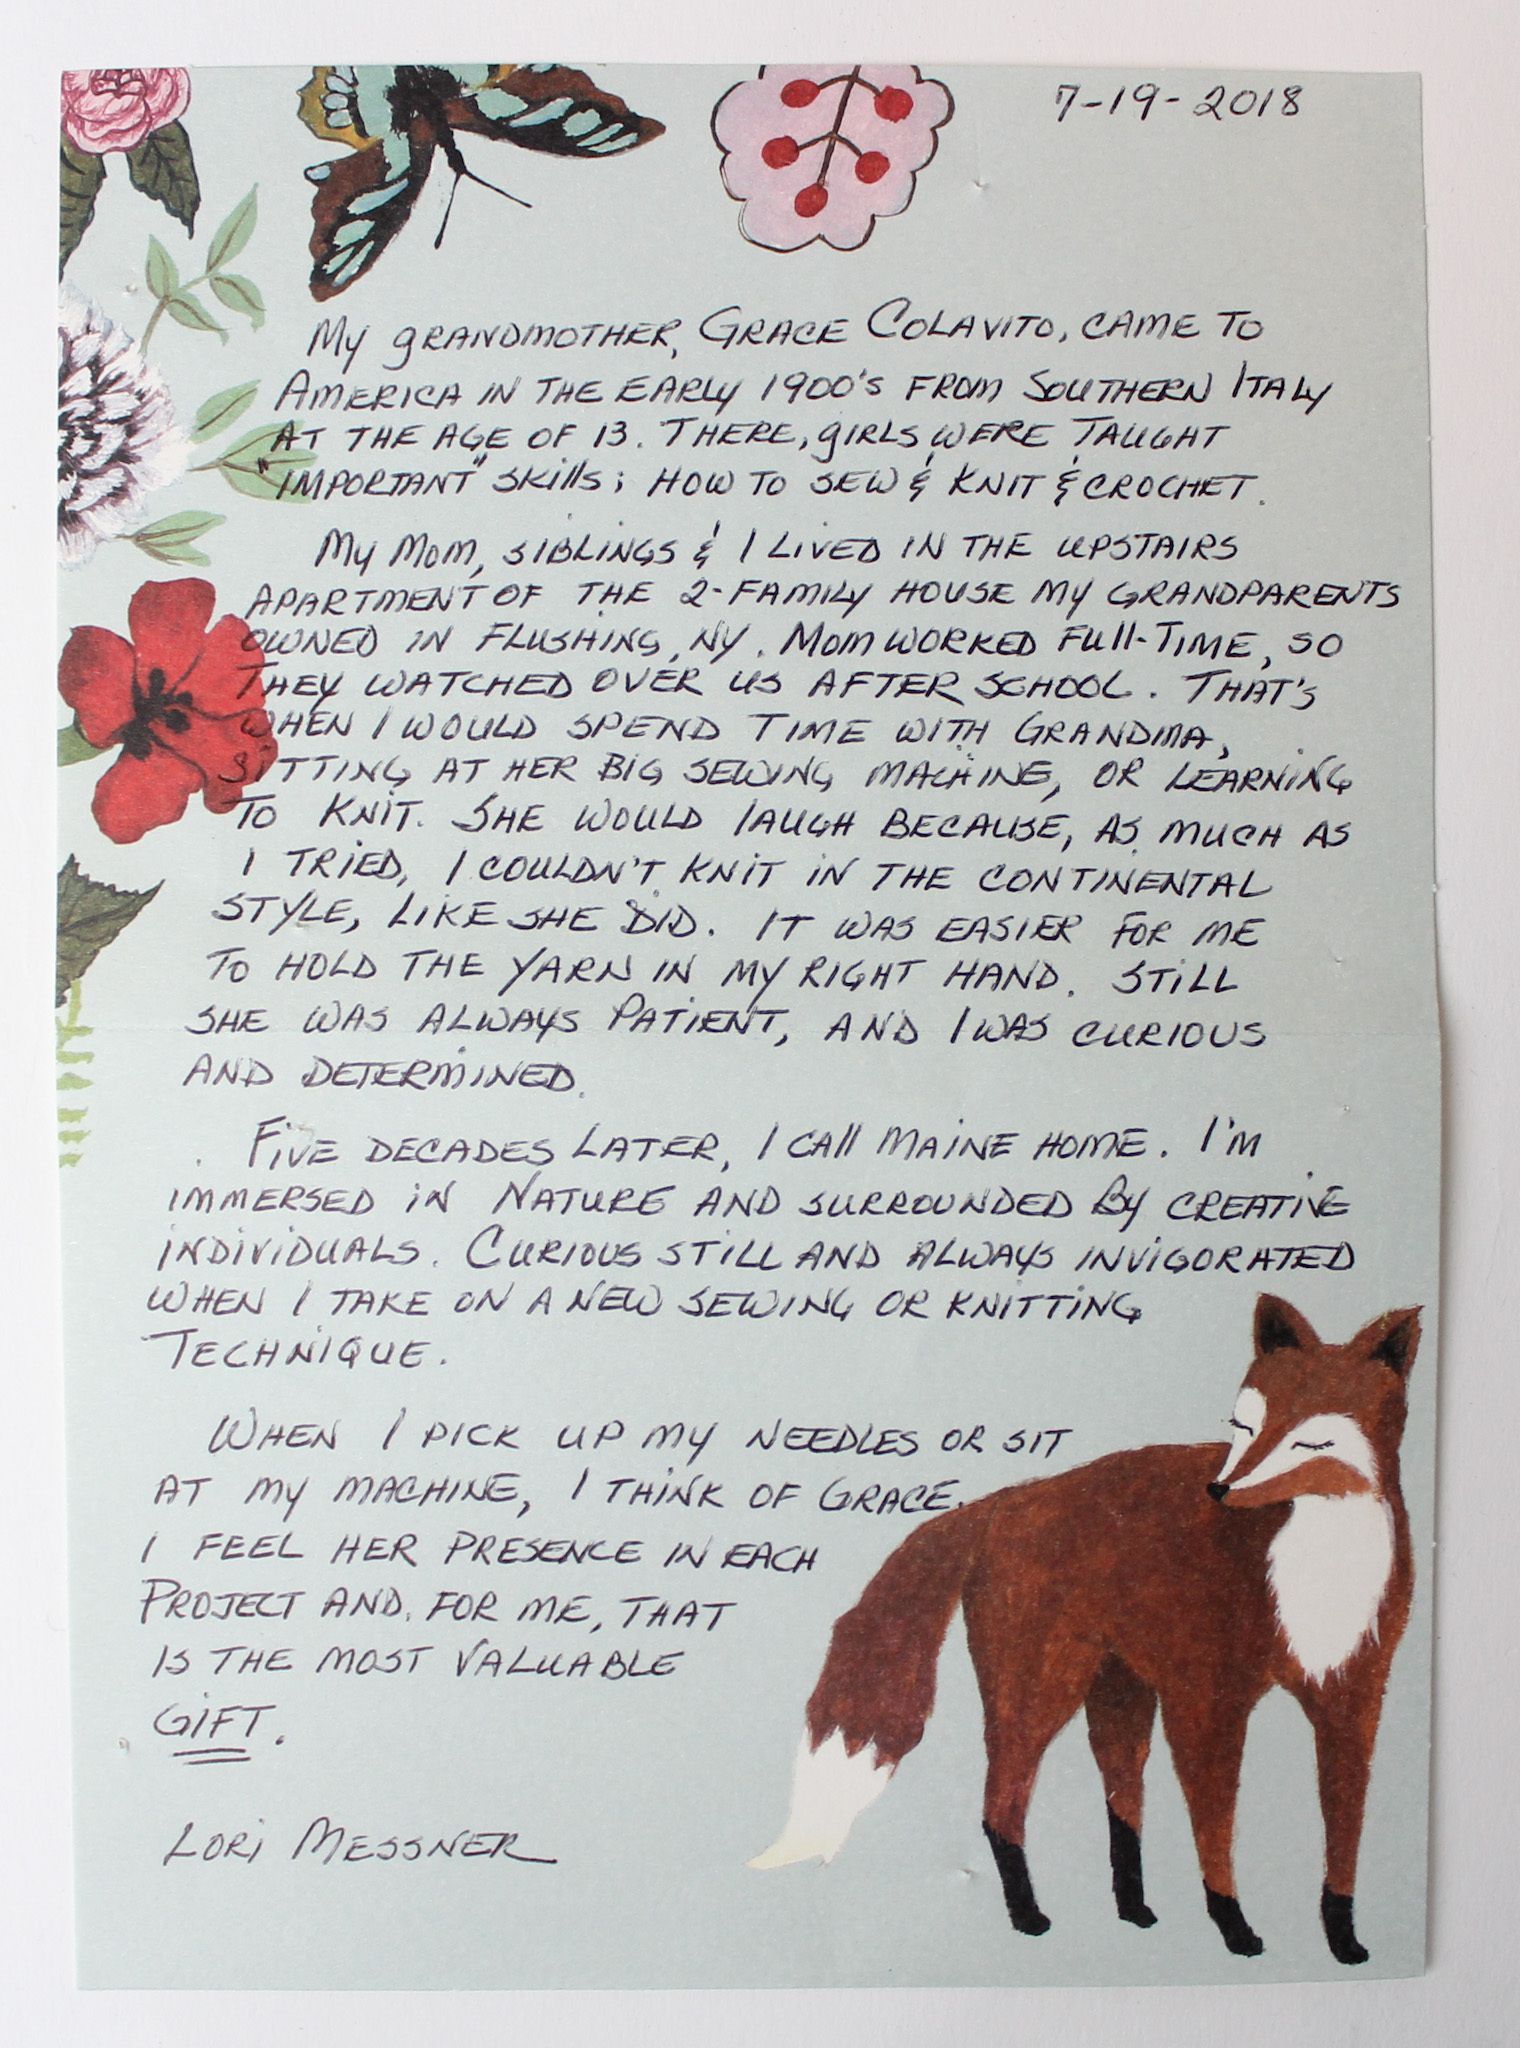 7-19-2018
My grandmother, Grace Colavito, came to
America in the early 1900's from Southern Italy
at the age of 13. There, girls were taught
"important" skills; how to sew & knit & crochet.
My Mom, siblings & I lived in the upstairs
apartment of the 2-family house my grandparents
owned in Flushing, NY. Mom worked full-time, so
they watched over us after school. That's
when I would spend time with Grandma,
sitting at her big sewing machine, or learning
to knit. She would laugh because, as much as
I tried, I couldn't knit in the continental
style, like she did. It was easier for me
to hold the yarn in my right hand. Still
she was always patient, and I was curious
and determined.
Five decades later, I call Maine home. I'm
immersed in nature and surrounded by creative
individuals. Curious still and always invigorated
when I take on a new sewing or knitting
technique.
When I pick up my needles or sit
at my machine, I think of Grace.
I feel her presence in each
project and, for me, that
is the most valuable
gift.
Lori Messner